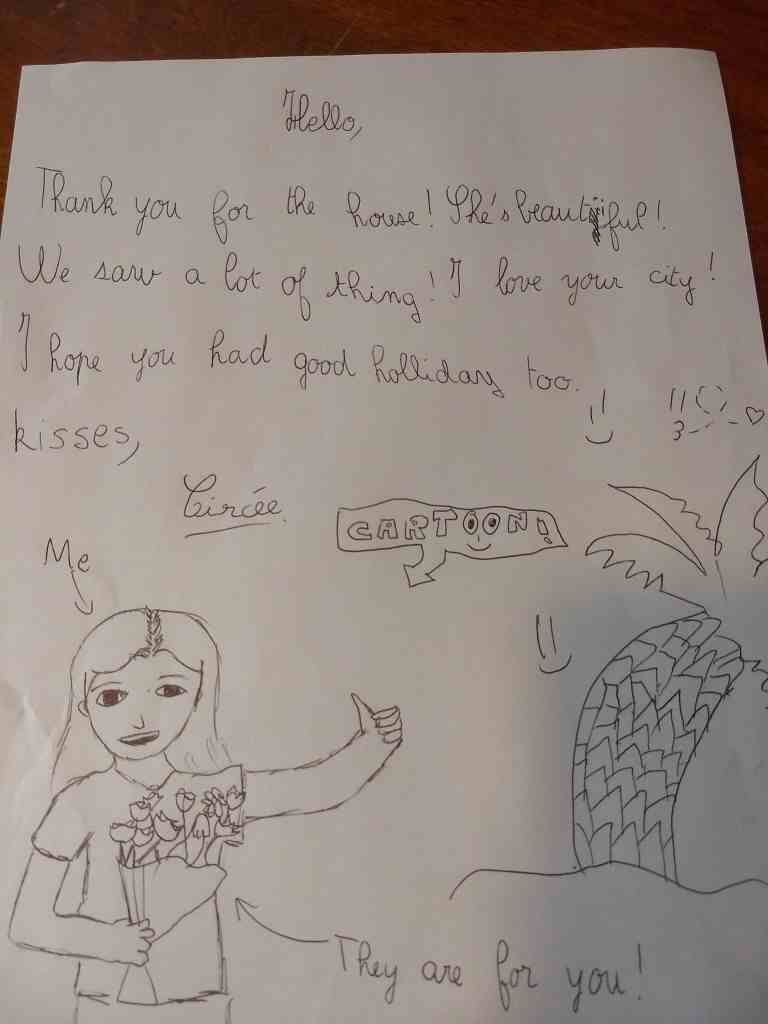 Hello,
Thank you for the house! She's beautiful!
We saw a lot of thing! I love your city!
I hope you had good hollidays too.
kisses,
Circée
CARTOON!
Me
They are for you!